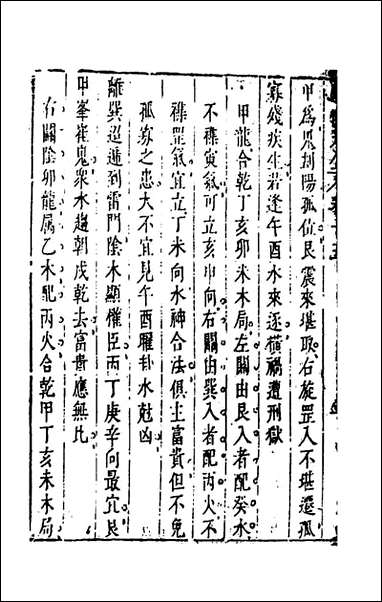 甲爲鬼刦陽孤位艮震來堪取右旋罡入不堪還孤
寡殘疾生若逢午酉水來逐橫禍遭刑獄
甲龍合乾丁亥卯未木局左關由艮入者配癸水
不襍寅氣可立亥申向右關由巽入者配丙火不
襍罡氣宜立丁未向水神合法俱主富貴但不免
孤寡之患大不宜見午酉曜卦水尅凶
離巽迢遞到雷門陰木顯催臣丙丁庚辛向最宜艮
甲峯崔嵬衆水趨朝戌乾去富貴應無比
右關陰卯龍属乙木配丙火合乾甲丁亥未木局